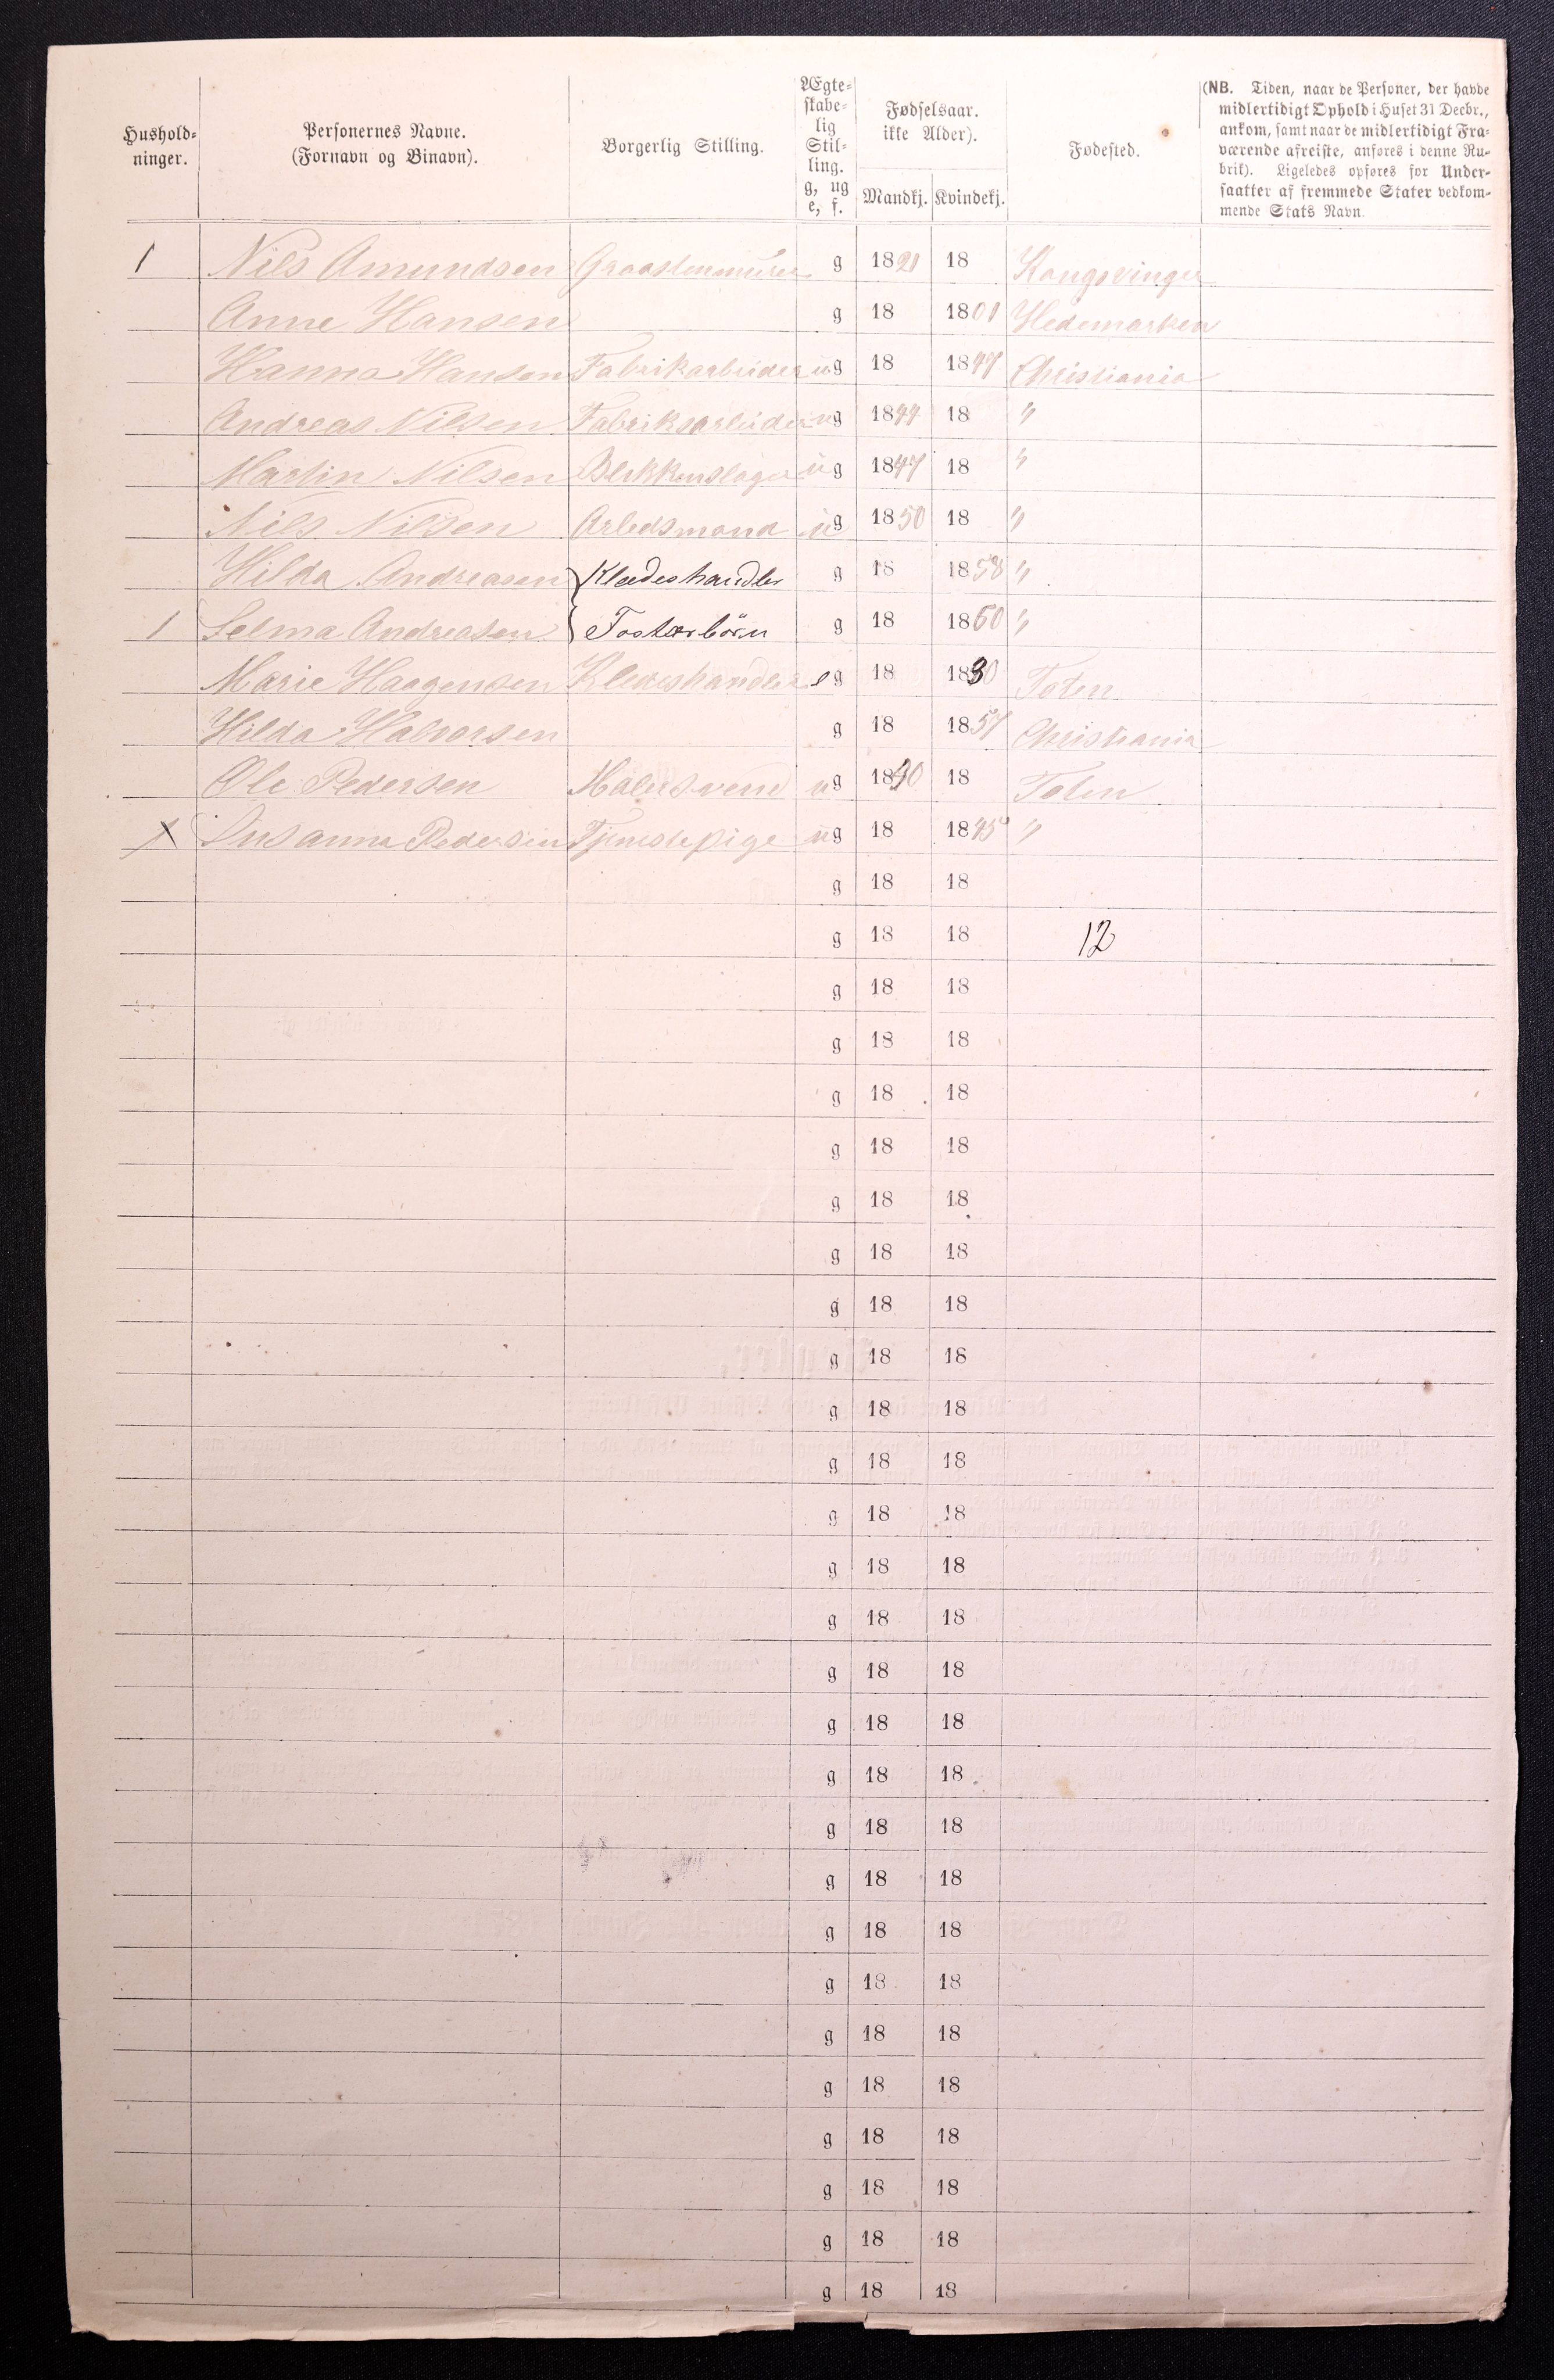 Hushold-
ninger.
Personernes Navne.
(Fornavn og Binavn).
Borgerlig Stilling.
Ægte-
skabe-
lig
Stil-
ling.
g, ug
e, f.
Fødselsaar.
ikke Alder).
Mandkj. Kvindekj.
Fødested.
(NB. Tiden, naar de Personer, der havde
midlertidigt Ophold i Huset 31 Decbr.,
ankom, samt naar de midlertidigt Fra-
værende afreiste, anføres i denne Ru-
brik). Ligeledes opføres for Under-
saatter af fremmede Stater vedkom-
mende Stats Navn.
1 Nils Amundsen Graastenmurer g 1821 18 Kongsvinger
Anne Hansen g 18 1801 Hedemarken
Hanna Hansen Fabrikarbeider ug 18 1847 Christiania
Andreas Nilsen Fabriksarbeider ug 1844 18 "
Martin Nilsen Blikkenslager ug 1847 18 "
Nils Nilsen Arbedsmand ug 1850 18 "
Hilda Andreasen } Klædeshandler g 18 1858 "
1 Selma Andreasen } Fosterbörn g 18 1860 "
Marie Haagensen Kledeshandler eg 18 1830 Toten
Hilda Halvorsen g 18 1857 Christiania
Ole Pedersen Malersvend ug 1840 18 Toten
1 Susanna Pedersen Tjenestepige ug 18 1845 "
g 18 18
g 18 18 12
g 18 18
g 18 18
g 18 18
g 18 18
g 18 18
g 18 18
g 18 18
g 18 18
g 18 18
g 18 18
g 18 18
g 18 18
g 18 18
g 18 18
g 18 18
g 18 18
g 18 18
g 18 18
g 18 18
g 18 18
g 18 18
g 18 18
g 18 18
g 18 18
g 18 18
g 18 18